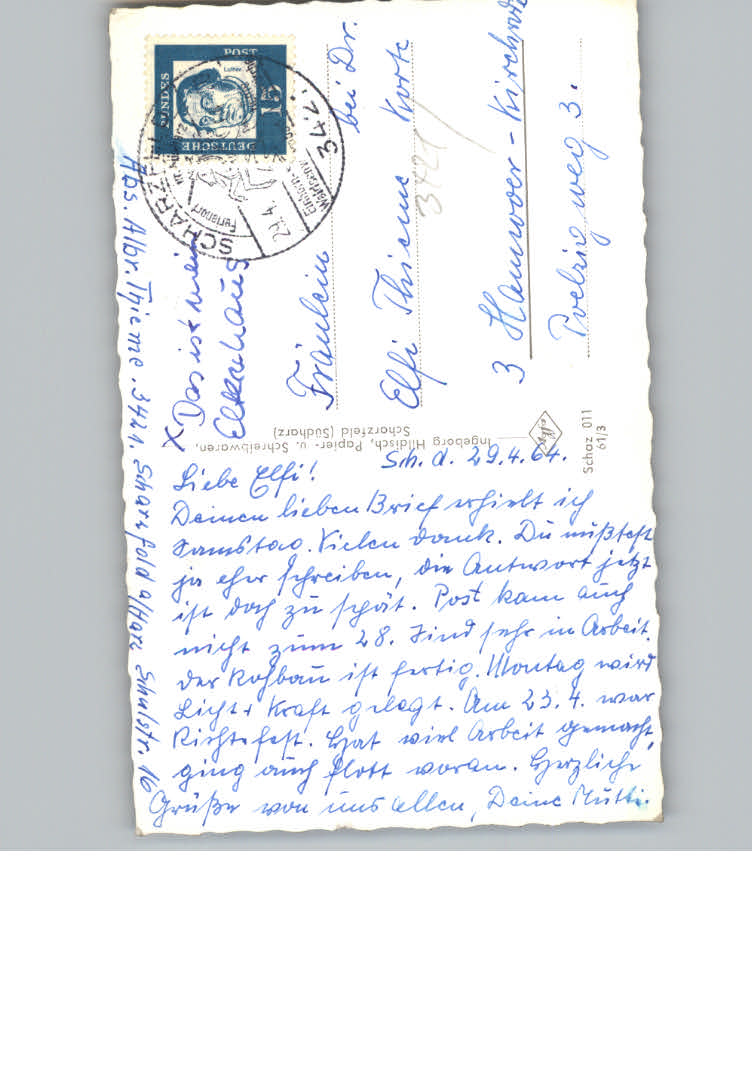 Sch. d. 29.4.64.
Liebe Elfi!
Deinen lieben Brief erhielt ich
Samstag. Vielen Dank. Du müßtest
ja eher schreiben, die Antwort jetzt
ist doch zu spät. Post kam auch
nicht zum 28. Sind sehr in Arbeit.
Der Rohbau ist fertig. Montag wird
Licht + Kraft gelegt. Am 23.4. war
Richtefest. Hat viel Arbeit gemacht,
ging auch flott voran. Herzliche
Grüße von uns allen, Deine Mutti.
X Das ist mein
Elternhaus
Fräulein
Elfi Thieme bei Dr. Korte
3 Hannover-Kirchrode
Poelzigweg 3.
3421
Abs. Albr. Thieme. 3421. Scharzfeld a/Harz Schulstr. 16
Ingeborg Hildisch, Papier- u. Schreibwaren,
Scharzfeld (Südharz)
Schaz 011
61/3
DEUTSCHE
BUNDES
POST
15
Luther
SCHARZF
342
29.4
Ferienort